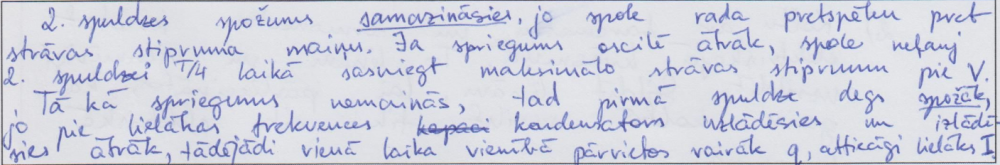 2. spuldzes spožums samazināsies, jo spole rada pretspēku pret
strāvas stipruma maiņu. Ja spriegums oscilē ātrāk, spole neļauj
2. spuldzei T/4 laikā sasniegt maksimālo strāvas stiprumu pie V.
Tā kā spriegums nemainās, tad pirmā spuldze degs spožāk,
jo pie lielākas frekvences kondensators uzlādēsies un izlādē-
sies ātrāk, tādējādi vienā laika vienībā pārvietos vairāk q, attiecīgi lielāks I